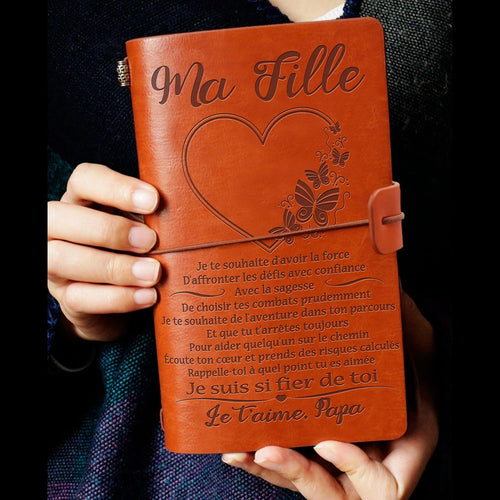 Ma Fille
Je te souhaite d'avoir la force
D'affronter les défis avec confiance
Avec la sagesse
De choisir tes combats prudemment
Je te souhaite de l'aventure dans ton parcours
Et que tu t'arrêtes toujours
Pour aider quelqu'un sur le chemin
Écoute ton cœur et prends des risques calculés
Rappelle-toi à quel point tu es aimée
Je suis si fier de toi
Je t'aime, Papa